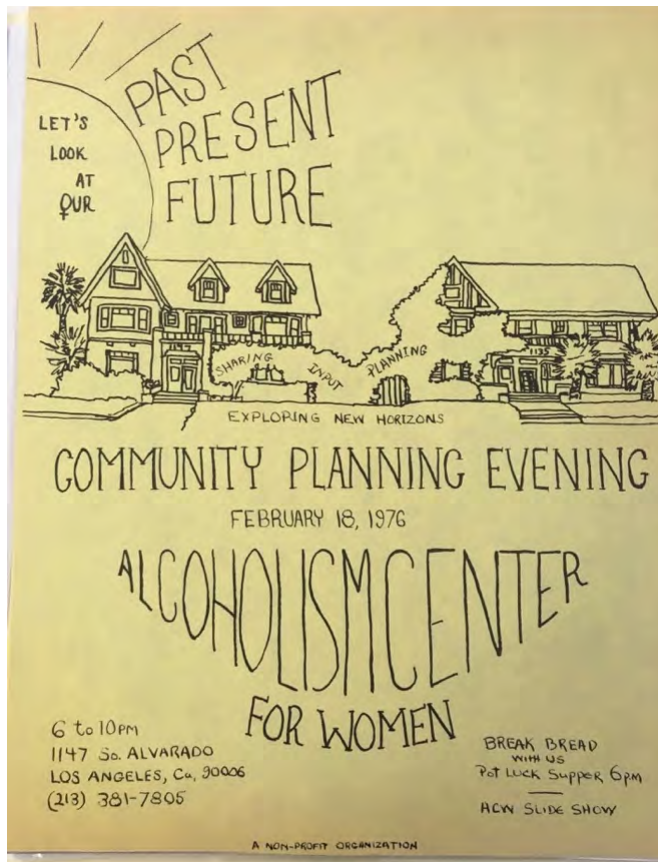 LET'S
LOOK
AT
OUR
PAST
PRESENT
FUTURE
1147
1135
SHARING
INPUT
PLANNING
EXPLORING NEW HORIZONS
COMMUNITY PLANNING EVENING
FEBRUARY 18, 1976
ALCOHOLISM CENTER
FOR WOMEN
6 to 10PM
1147 So. ALVARADO
LOS ANGELES, Ca, 90006
(213) 381-7805
BREAK BREAD
WITH US
POT LUCK SUPPER 6pm
ACW SLIDE SHOW
A NON-PROFIT ORGANIZATION